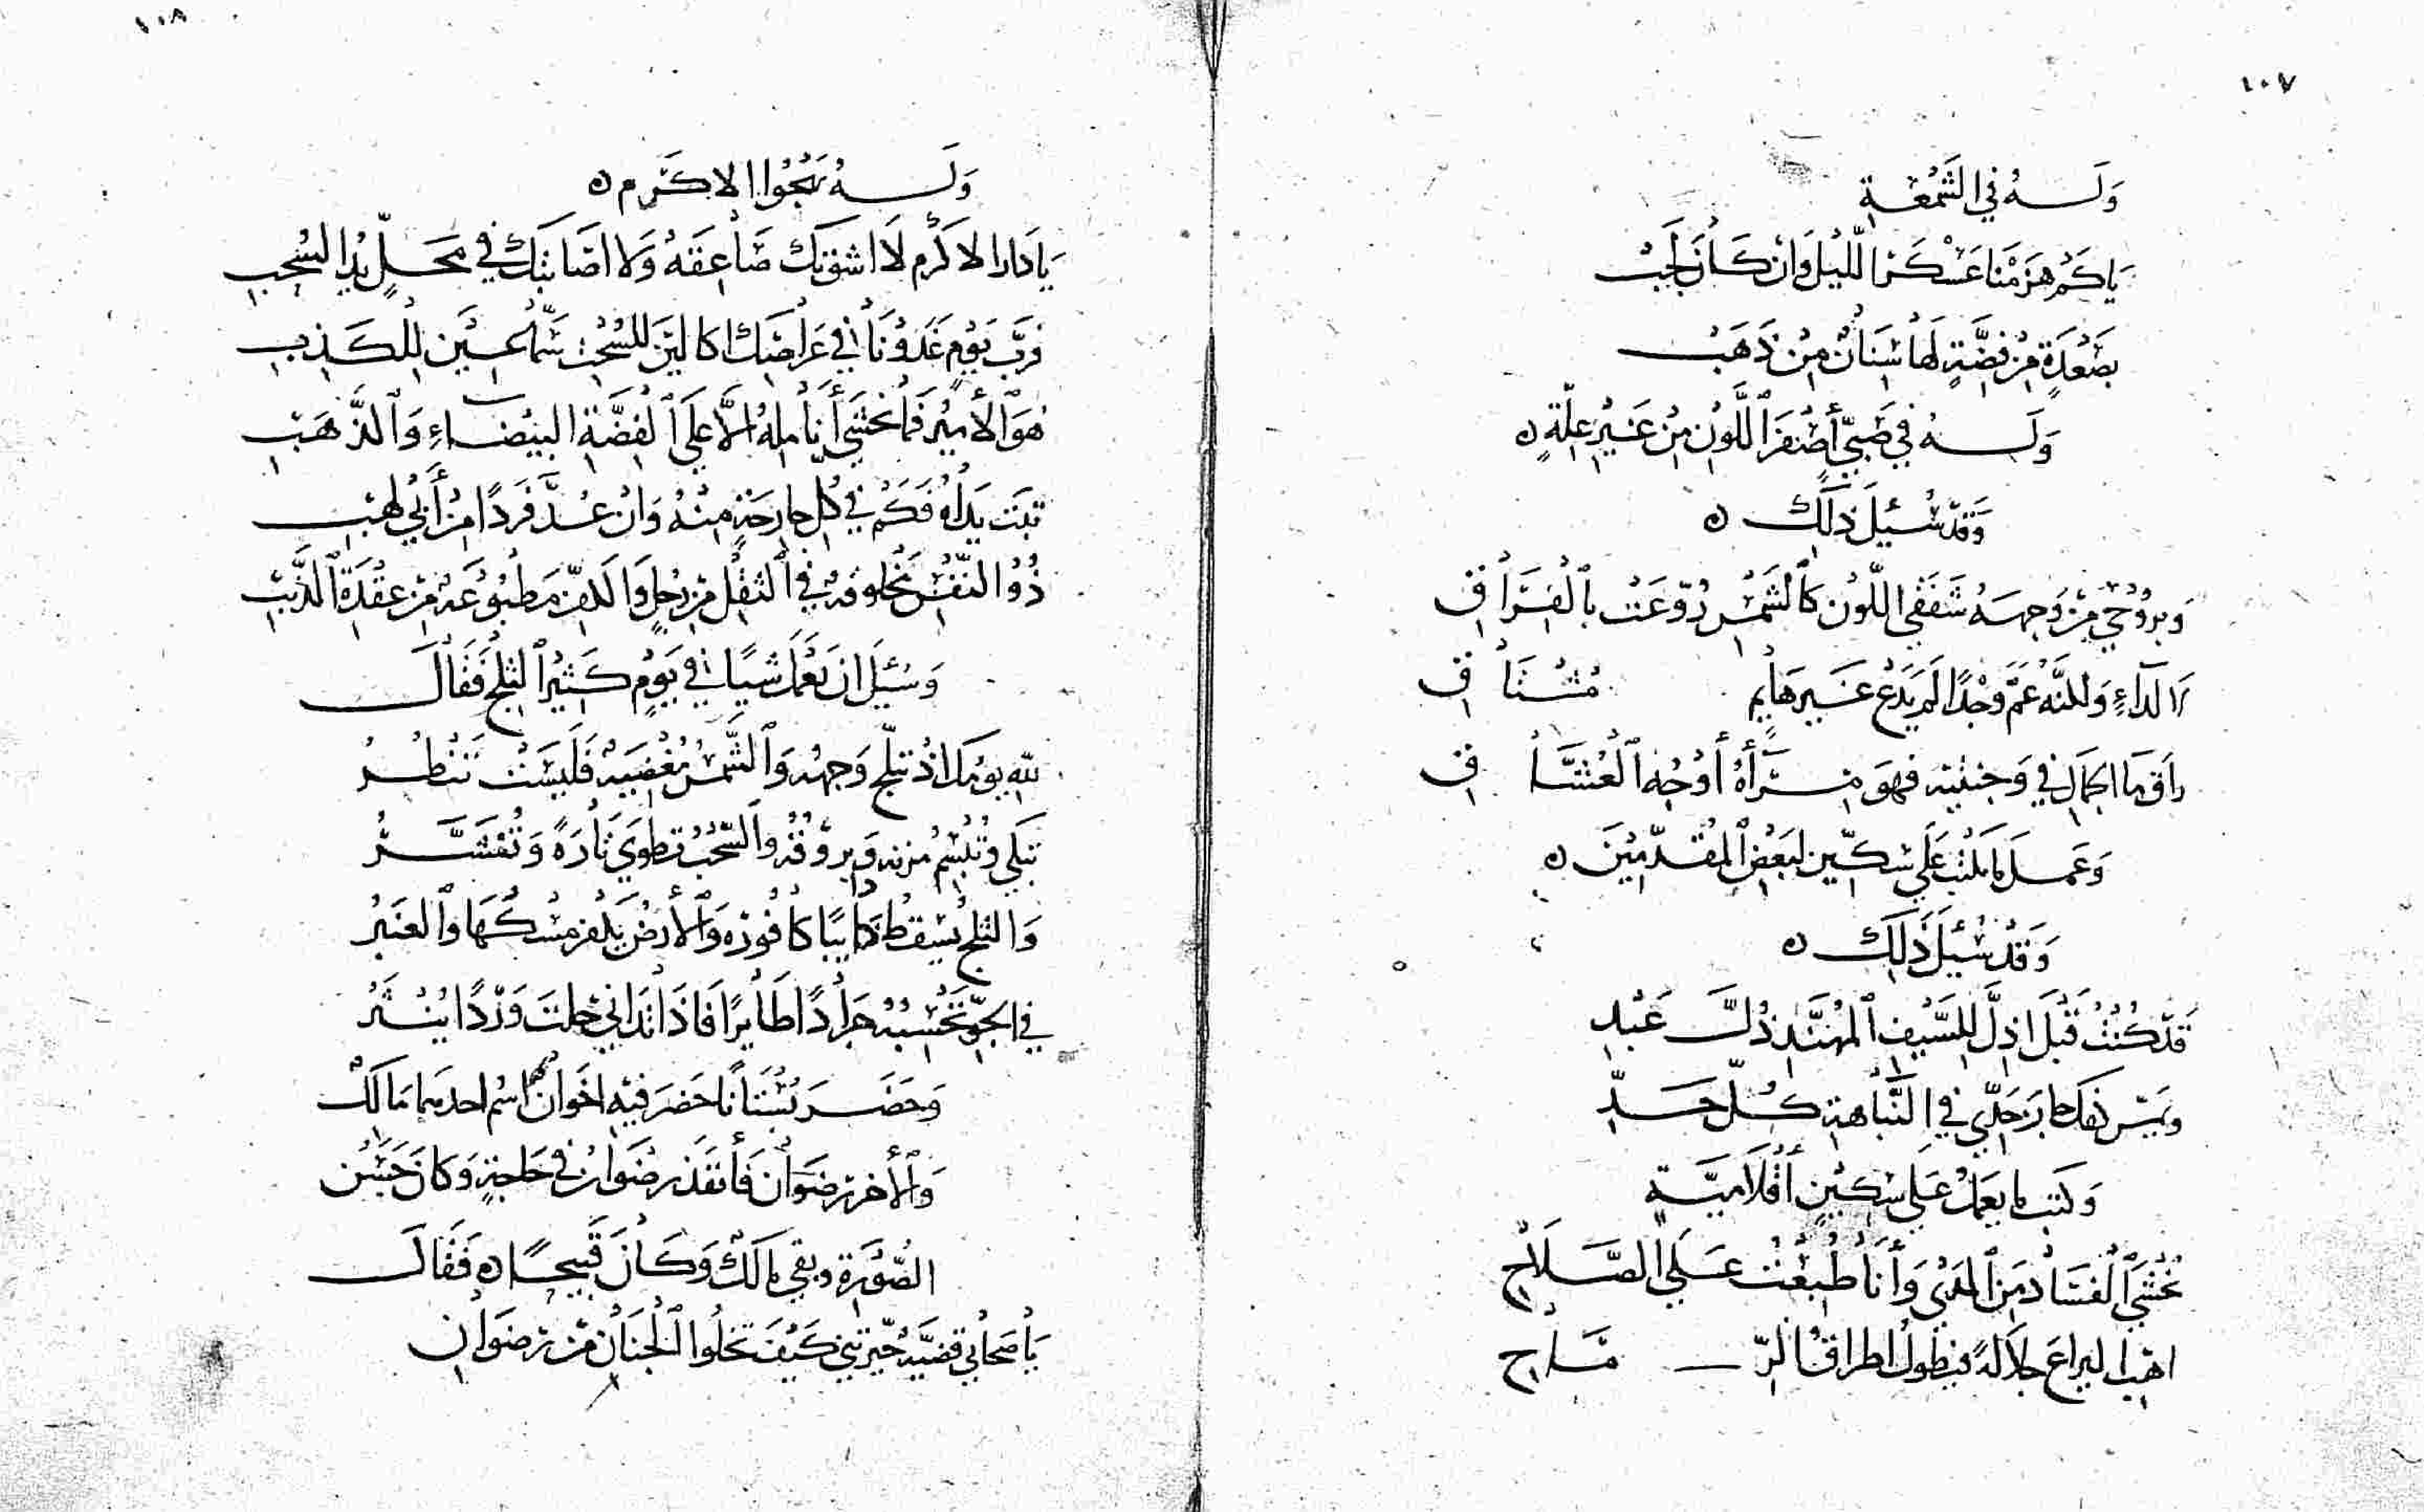 ١٠٧
وَلَــهُ فِي الشَّمْعَةِ
يَاكَمْ هَزَمْنَا عَسْكَرَ اللَّيْلِ وَانْ كَانَ لَجِبْ
بِصَعْدَةٍ مِنْ فِضَّةٍ لَهَا سِنَانٌ مِنْ ذَهَبْ
وَلَــهُ فِي صَبِيٍّ أَصْفَرَ اللَّوْنِ مِنْ غَيْرِ عِلَّةٍ ه
وَقَدْ سُئِلَ ذَلِكَ ه
وَبرُوُحِي مِنْ وَجهــهُ شَفَقِي اللَّوْنِ كَالشَّمْسِ رُوّعَتْ بِالْفِرَاقِ
لَا لِدَاءٍ وَلكنَّهُ عَمَّ وَجْدًا لَمْ يَدَعْ غَيْرهَايِم مُشْتَاقِ
رَاقَ مَا الجمَالِ فِي وَجنتيْهِ فَهوَ مِرْآةُ أَوْجُهِ الْعُشَّاقِ
وَعَمــلَ مَا يكْتُبُ عَلَي سِكِّينٍ لِبَعْضِ الْمُقَدَّمِيْنَ ه
وَقَدْ سُئِلَ ذَلِكَ ه
قَدْ كُنْتُ قَبْلَ اذِلَّ لِلسَّيْفِ الْمُهَنَّدِ ذُلَّ عَبْدِ
حَدِّي فِي النَّبَاهَةِ كُــلَّ حَــدِّ
وَكَتَبَ مَا يعْمَلُ عَلَي سِكِّيْنٍ أَقْلَامِيَّــةٍ
تُخْشَي الْفَسَادُ مِنَ الْمُدَيْ وَأَنَا طُبِعْتُ عَلَي الصَّــلَاحِ
اهَبُ اليرَاعَ جَلَالَةً فَيطُولُ اطرافَ الرِّمَــاحِ
١٠٨
وَلَــهُ يَهْجُوا الاكَــرم ه
يَا دَارَ الاكْرَم لَا اشقَتكِ صَاعِقَهُ وَلَا اصَابَتكِ فِي مَحَــلٍّ يَدُ السُّحُبِ
فَرُبَّ يَوْمٍ غَدَوْنَا فِي عَرَاصِكِ اكَالِيْنَ لِلسُّحْتِ سَمَّاعِــيْنَ لِلْكَــذِبِ
هُوَ الأَمِيْرُ فَمَا تُخْشَي أَنَامِلهُ إلَّا عَلَي الْفِضَّةِ الْبَيْضَــاءِ وَالذَّهَبِ
تَبَّتْ يَدَاهُ فَكَمْ فِي كُلِّ جارِحَةٍ مِنْهُ وَانْ عُــدَّ فَردًا مِنْ أَبِي لَهَبِ
ذُوُ النَّفْسِ مَخْلوقَهٌ فِي الثِّقْلِ مِنْ زُحَلٍ وَالكَفِّ مَطْبُوْعَهٌ مِنْ عِقْدَةِ الذَّنَبِ
وَسُئِلَ انْ يَعْمَلَ شَيًا فِي يَوْمٍ كَثِيْرِ الثلْجِ فَقَالَ
لِلّهِ يوْمكَ اذْ تبلّجَ وَجهُهُ وَالشَّمْسُ مُغْضِيَهٌ فَلَيْسَتْ تَنْظُــرُ
تَبكي وَتَبْسِمُ مُزنه وَبروُقُهُ وَالسُّحْبُ تطْوَي تَارَةً وَتُنْشَــرُ
وَالثلج يسْقطُ دَايبًا كافُورُه وَالأَرْضُ يكْفر مِسْكُهَا وَالعَنْبَرُ
فِي الجَوِّ تَحْسِبُهُ جَرَادًا طَايرًا فَاذَا تَدَانَي خِلتَ وَرْدًا يُنْــثَرُ
وَحَضَــرَ بُسْتَانًا حَضَرَ فِيهِ اخَوَانِ اسْم احدهمَا مَالكْ
وَالأخر رضْوَانُ فَأَنفَذَ رضْوَان فِي حَاجَةٍ وَكَانَ حَسَنَ
الصُّوْرَةِ وبقي مَالكْ وَكَانَ قَبِيحًــا ه فَقَالَ
يَا صَحَابِي قَضيَّهٌ حيّرتني كَيْفَ تَخْلُوا الْجِنَانُ مِنْ رضْوَانِ